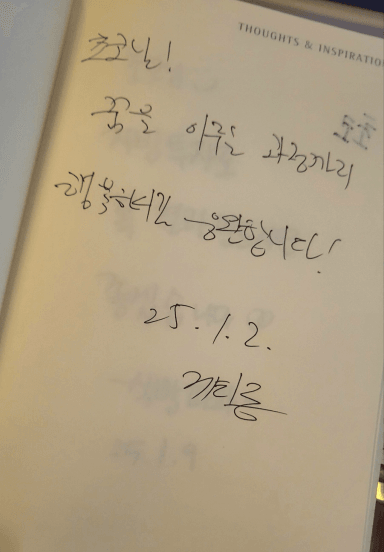 THOUGHTS & INSPIRATIO
초코님!
꿈을 이루는 과정까지
행복하시길 응원합니다!
25. 1. 2.